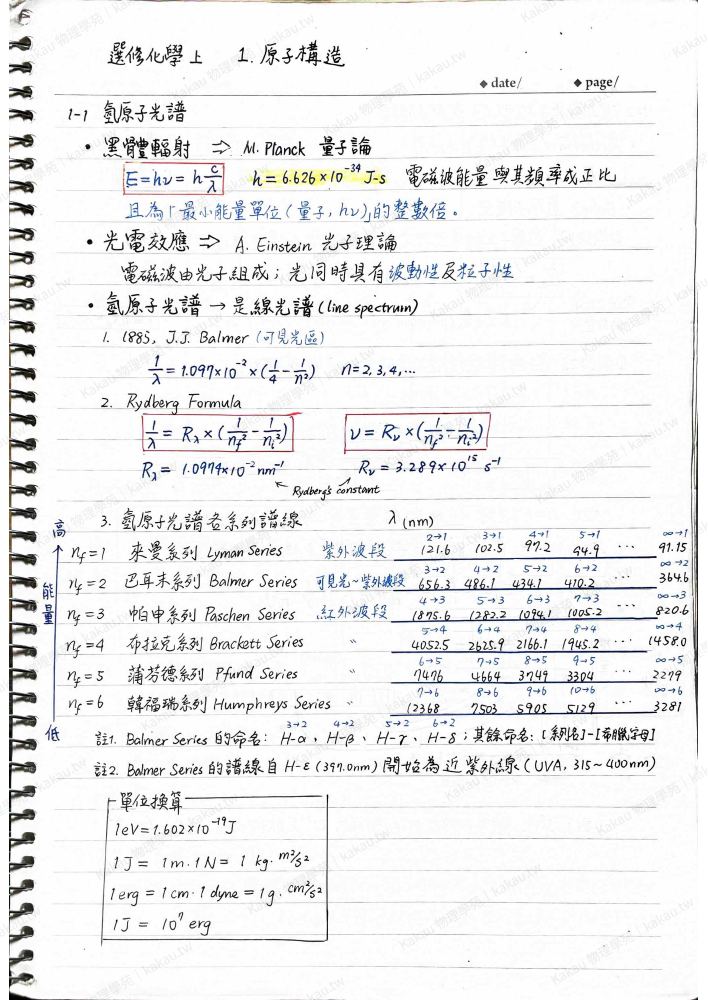 選修化學上 1. 原子構造
◆ date/ ◆ page/
1-1 氫原子光譜
• 黑體輻射 ⇒ M. Planck 量子論
E=hν=h c/λ h=6.626×10⁻³⁴ J-s 電磁波能量與其頻率成正比
且為「最小能量單位(量子, hν)」的整數倍。
• 光電效應 ⇒ A. Einstein 光子理論
電磁波由光子組成；光同時具有波動性及粒子性
• 氫原子光譜 → 是線光譜 (line spectrum)
1. 1885, J.J. Balmer (可見光區)
1/λ = 1.097×10⁻² × (1/4 - 1/n²) n=2,3,4,...
2. Rydberg Formula
1/λ = Rλ × (1/nf² - 1/ni²) ν = Rν × (1/nf² - 1/ni²)
Rλ = 1.0974×10⁻² nm⁻¹ Rν = 3.289×10¹⁵ s⁻¹
Rydberg's constant
3. 氫原子光譜各系列譜線 λ (nm)
高
能量
低
2→1 3→1 4→1 5→1 ∞→1
nf=1 來曼系列 Lyman Series 紫外波段 121.6 102.5 97.2 94.9 ... 91.15
3→2 4→2 5→2 6→2 ∞→2
nf=2 巴耳末系列 Balmer Series 可見光~紫外波段 656.3 486.1 434.1 410.2 ... 364.6
4→3 5→3 6→3 7→3 ∞→3
nf=3 帕申系列 Paschen Series 紅外波段 1875.6 1282.2 1094.1 1005.2 ... 820.6
5→4 6→4 7→4 8→4 ∞→4
nf=4 布拉克系列 Brackett Series 〃 4052.5 2625.9 2166.1 1945.2 ... 1458.0
6→5 7→5 8→5 9→5 ∞→5
nf=5 蒲芬德系列 Pfund Series 〃 7476 4664 3749 3304 ... 2279
7→6 8→6 9→6 10→6 ∞→6
nf=6 韓福瑞系列 Humphreys Series 〃 12368 7503 5905 5129 ... 3281
3→2 4→2 5→2 6→2
註1. Balmer Series 的命名: H-α、H-β、H-γ、H-δ；其餘命名:[系列名]-[希臘字母]
註2. Balmer Series 的譜線自 H-ε (397.0nm) 開始為近紫外線 (UVA, 315~400nm)
單位換算
1eV=1.602×10⁻¹⁹J
1J = 1m·1N = 1 kg·m²/s²
1erg = 1cm·1dyne = 1g·cm²/s²
1J = 10⁷ erg
Kakau 物理學苑 | kakau.tw